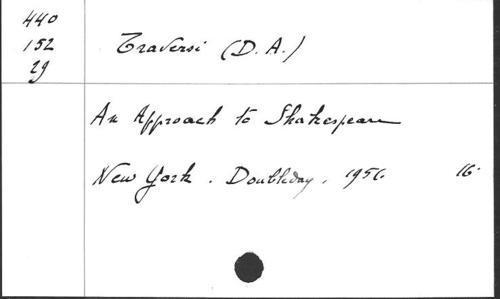 440
152
29
Traversi (D. A.)
An Approach to Shakespeare
New York . Doubleday . 1956. 16.